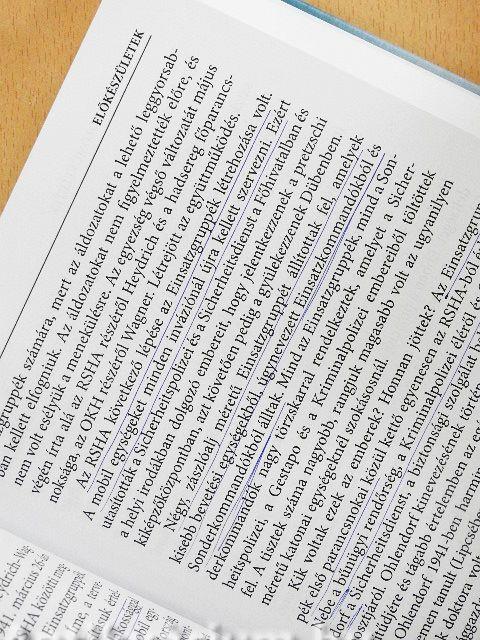 ELŐKÉSZÜLETEK
gruppék számára, mert az áldozatokat a lehető leggyorsab-
ban kellett elfogniuk. Az áldozatokat nem figyelmeztették előre, és
nem volt esélyük a menekülésre. Az egyezség végső változatát május
végén írta alá az RSHA részéről Heydrich és a hadsereg főparancs-
noksága, az OKH részéről Wagner. Létrejött az együttműködés.
Az RSHA következő lépése az Einsatzgruppék létrehozása volt.
A mobil egységeket minden inváziónál újra kellett szervezni. Ezért
utasították a Sicherheitspolizei és a Sicherheitsdienst a Főhivatalban és
a helyi irodákban dolgozó embereit, hogy jelentkezzenek a pretzschi
kiképzőközpontban, azt követően pedig a gyülekezzenek Dübenben.
Négy, zászlóalj méretű Einsatzgruppét állítottak fel, amelyek
kisebb bevetési egységekből, úgynevezett Einsatzkommandókból és
Sonderkommandókból álltak. Mind az Einsatzgruppék, mind a Son-
derkommandók nagy törzskarral rendelkeztek, amelyet a Sicher-
heitspolizei, a Gestapo és a Kriminalpolizei embereiből töltöttek
fel. A tisztek száma nagyobb, rangjuk magasabb volt az ugyanilyen
méretű katonai egységeknél szokásosnál.
Kik voltak ezek az emberek? Honnan jöttek? Az Einsatzgrup-
pék első parancsnokai közül kettő egyenesen az RSHA-ból
Nebe a bűnügyi rendőrség, a Kriminalpolizei éléről és
dorf, a Sicherheitsdienst, a biztonsági szolgálat
Ohlendorf kinevezésének
tágabb értelemben az
Ohlendorf 1941-ben harminc
tanult (Lipcsében
doktora
1941 március 26-án
RSHA közötti meg-
Einsatzgruppe